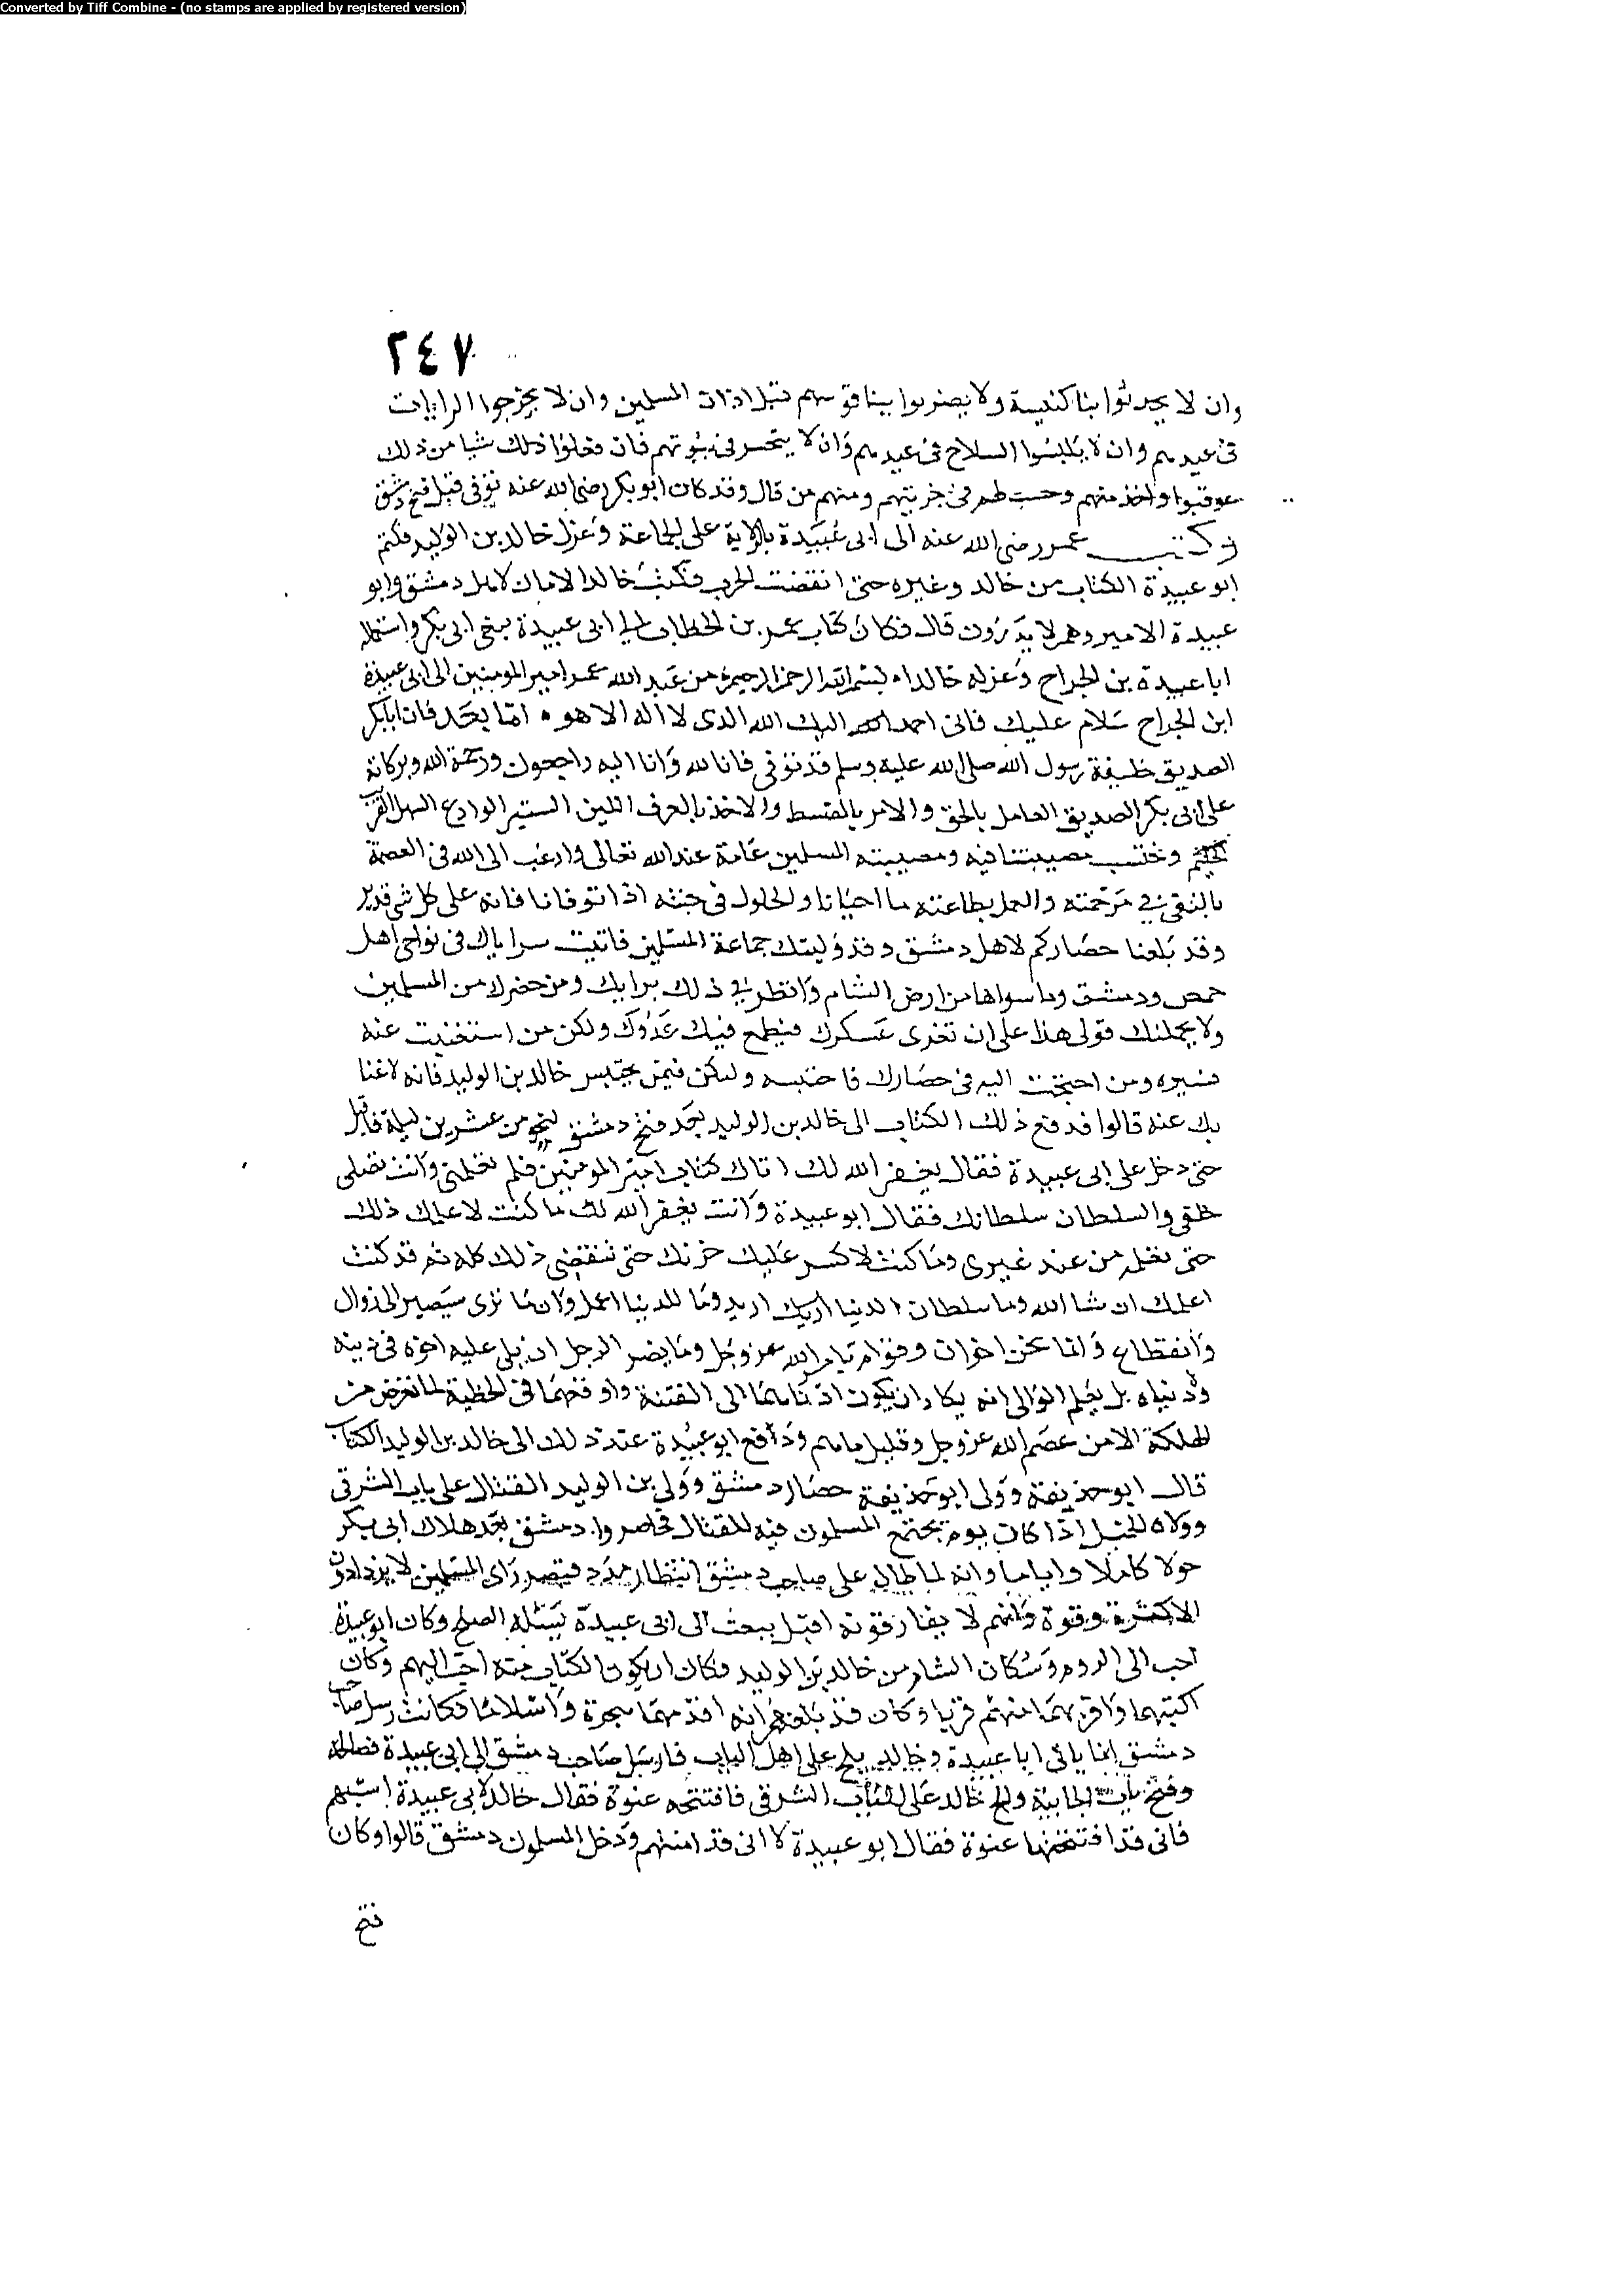 Converted by Tiff Combine - (no stamps are applied by registered version)
٢٤٧
وان لا يحدثوا بنا كنيسة ولا يضربوا بناقوسهم قبل اذان المسلمين وان لا يخرجوا الرايات
فى عيدهم وان لا يلبسوا السلاح فى عيدهم وان لا يتخذ فى بيوتهم فان فعلوا ذلك شيا من ذلك
عوقبوا واخذ منهم وحسب لهم فى جزيتهم ومنهم من قال وقد كان ابو بكر رضى الله عنه توفى قبل فتح دمشق
وكتب عمر رضى الله عنه الى ابى عبيدة بالولاية على الجماعة وعزل خالد بن الوليد فكتم
ابو عبيدة الكتاب من خالد وغيره حتى انقضت الحرب فكتب خالد الامان لاهل دمشق وابو
عبيدة الامير وهم لا يدرون قال فكان كتاب عمر بن الخطاب الى ابى عبيدة ينعى ابى بكر واستعماله
ابا عبيدة بن الجراح وعزله خالدا بسم الله الرحمن الرحيم من عبد الله عمر امير المومنين الى ابى عبيدة
ابن الجراح سلام عليك فانى احمد اليك الله الذى لا اله الا هو اما بعد فان ابا بكر
الصديق خليفة رسول الله صلى الله عليه وسلم قد توفى فانا لله وانا اليه راجعون ورحمة الله وبركاته
على ابى بكر الصديق العامل بالحق والامر بالقسط والاخذ بالعرف اللين الستير الوادع السهل القريب
ونحتسب مصيبتنا فيه ومصيبته المسلمين عامة عند الله تعالى وارغب الى الله فى العصمة
بالتقى فى مرحمته والعمل بطاعته ما احيانا والحلول فى جنته اذا توفانا فانه على كل شى قدير
وقد بلغنا حصاركم لاهل دمشق وقد وليتك جماعة المسلمين فاثبت سراياك فى نواحى اهل
حمص ودمشق وما سواها من ارض الشام وانظر فى ذلك برايك ومن حضرك من المسلمين
ولا يحملنك قولى هذا على ان تغرى عسكرك فيطمع فيك عدوك ولكن من استغنيت عنه
فسيره ومن احتجت اليه فى حصارك فاحتبسه وليكن فيمن يحتبس خالد بن الوليد فانه لا غنا
بك عنه قالوا فدفع ذلك الكتاب الى خالد بن الوليد بعد فتح دمشق لنحو من عشرين ليلة فاقبل
حتى دخل على ابى عبيدة فقال يغفر الله لك اتاك كتاب امير المومنين فلم تعلمنى وانت تصلى
خلفى والسلطان سلطانك فقال ابو عبيدة وانت يغفر الله لك ما كنت لاعلمك ذلك
حتى تعلمه من عند غيرى وما كنت لاكسر عليك حربك حتى تنقضى ذلك كله ثم قد كنت
اعلمك ان شا الله وما سلطان الدنيا اريد وما للدنيا اعمل وان ما ترى سيصير الى زوال
وانقطاع وانما نحن اخوان وقوام بامر الله عز وجل وما يضر الرجل ان يلى عليه اخوه فى دينه
ودنياه بل يعلم الوالى انه يكاد ان يكون ادناهما الى الفتنة واوقعهما فى الخطية لما تعرض من
الهلكة الا من عصم الله عز وجل وقليل ما هم ودفع ابو عبيدة عند ذلك الى خالد بن الوليد الكتاب
قال ابو حذيفة وولى ابو حذيفة حصار دمشق وولى بن الوليد القتال على باب الشرقى
وولاه الخيل اذا كان يوم يجتمع المسلمون فيه للقتال فحاصروا دمشق بعد هلاك ابى بكر
حولا كاملا واياما وانه لما طال على صاحب دمشق انتظار مدد قيصر راى المسلمين لا يزدادون
الا كثرة وقوة وانهم لا يفارقونه اقبل يبعث الى ابى عبيدة يسئله الصلح وكان ابو عبيدة
احب الى الروم وسكان الشام من خالد بن الوليد فكان ان يكون الكتاب منه احب اليهم وكان
وكان قد بلغهم انه اقدمهما هجرة واسلاما فكانت رسل صاحب
دمشق انما ياتى ابا عبيدة وخالد يلح على اهل الباب فارسل صاحب دمشق الى ابى عبيدة فصالحه
وفتح باب الجابية والح خالد على الباب الشرقى فافتتحه عنوة فقال خالد لابى عبيدة اسبهم
فانى قد افتتحتها عنوة فقال ابو عبيدة لا انى قد امنتهم ودخل المسلمون دمشق قالوا وكان
فتح